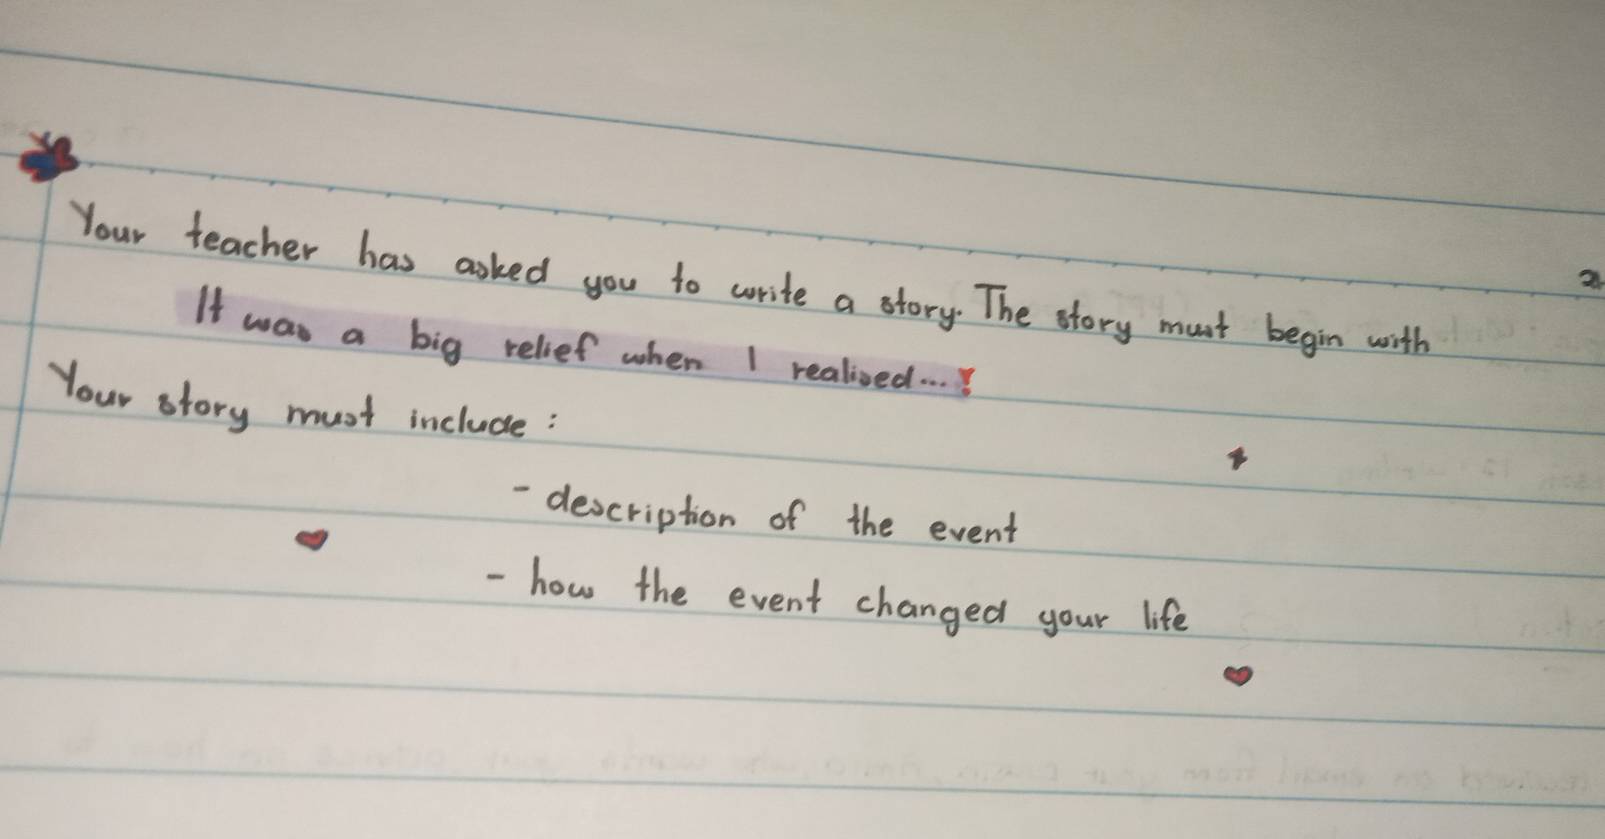 Your teacher has asked you to write a story. The story must begin with
It was a big relief when I realised...!
Your story must include :
- description of the event
- how the event changed your life